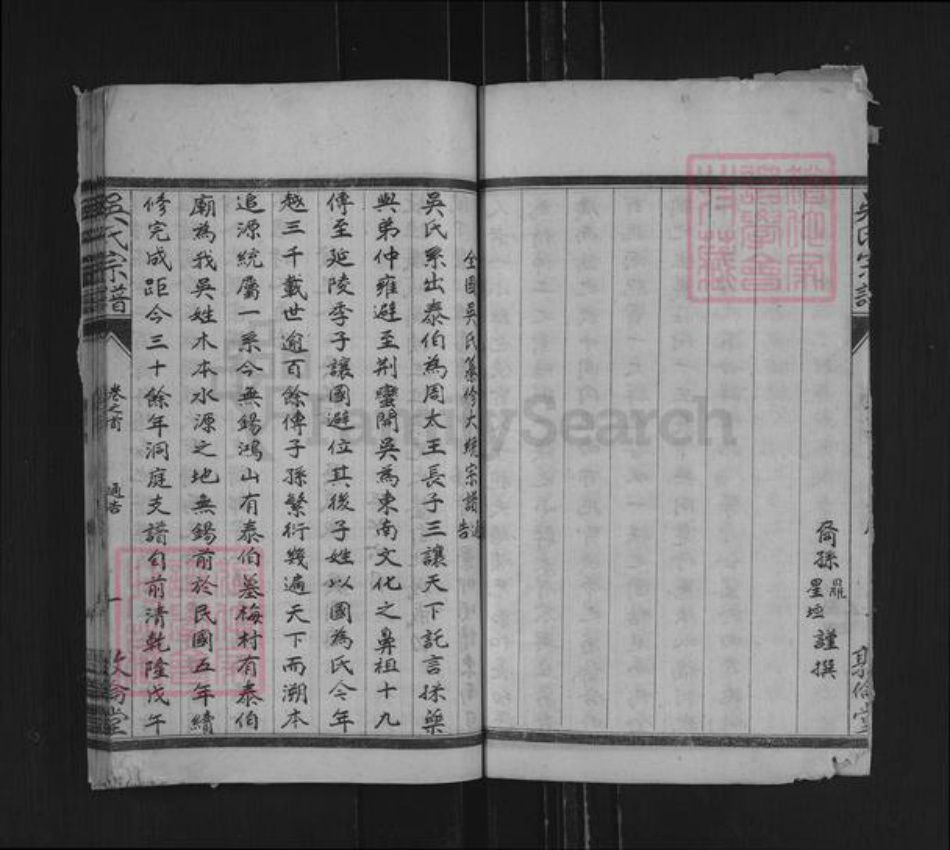 裔孫
羆
星垣
謹撰
吳氏宗譜
敦倫堂
全國吳氏纂修大統宗譜通告
吳氏系出泰伯為周太王長子三讓天下託言採藥
與弟仲雍避至荆蠻開吳為東南文化之鼻祖十九
傳至延陵季子讓國避位其後子姓以國為氏今年
越三千載世逾百餘傳子孫繁衍幾遍天下而溯本
追源統屬一系今無錫鴻山有泰伯墓梅村有泰伯
廟為我吳姓木本水源之地無錫前於民國五年續
修完成距今三十餘年洞庭支譜自前清乾隆戊午
吳氏宗譜
卷之首
通告
一
敦倫堂
FamilySearch